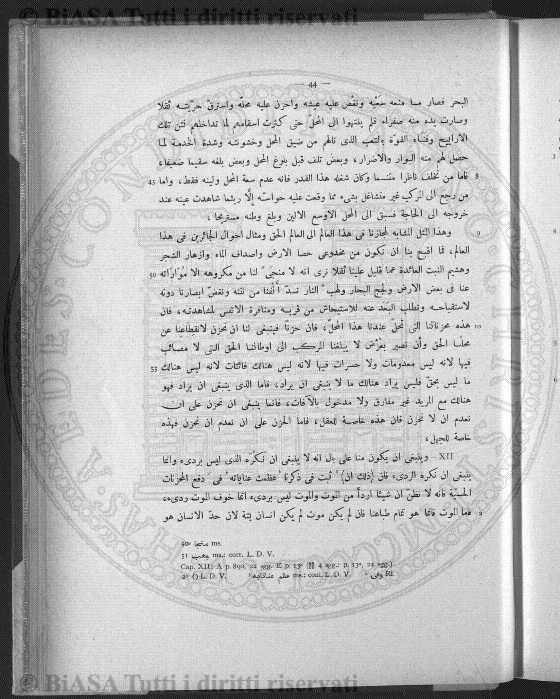 © BiASA Tutti i diritti riservati
— 44 —
البحر فصار مما منعه سعيه ونغص عليه عيشه واحزن عليه محله واسترق حريته ثقلا
وصارت بده منه صفراء فلم ينتهوا الى المحل حتى كثرت اسقامهم لما تداخلهم فتن تلك
الاراييح وفناء القوة بالتعب الذى نالهم من ضيق المحل وخشونته وشدة الخدمة لما
حصل لهم منه البوار والاضرار، وبعض تلف قبل بلوغ المحل وبعض بلغه سقيما ضعيفا،
8 فاما من تخلف ناظرا متنسما وكان شغله هذا القدر فانه عدم سعة المحل ولينه فقط، واما 45
من رجع الى المركب غير متشاغل بشىء مما وقعت عليه حواسه إلا ريثما شاهدت عينه عند
خروجه الى الحاجة فسبق الى المحل الاوسع الالين وبلغ وطنه مستريحا،
9 وهذا المثل المشابه لمجازنا فى هذا العالم الى العالم الحق ومثال احوال الجائزين فى هذا
العالم، فما اقبح بنا ان نكون من مخدوعى حصا الارض واصداف الماء وازهار الشجر
وهشيم النبت العائدة عما قليل علينا ثقلا نرى انه لا منجى لنا من مكروهه الا مواراته 50
عنا فى بعض الارض ولجج البحار ولهب النار نسد أنفنا من نتنه ونغض ابصارنا دونه
لاستقباحه ونطلب البعد عنه للاستيحاش من قربه ومنافرة الانفس لمشاهدته، فان
10 هذه محزناتنا التى تحل عندنا هذا المحل، فان حزنا فينبغى لنا ان نحزن لانقطاعنا عن
محلنا الحق وأن نصير بعرض لا يبلغنا المركب الى اوطاننا الحق التى لا مصائب
فيها لانه ليس معدومات ولا حسرات فيها لانه ليس هنالك فائتات لانه ليس هنالك 55
ما ليس بحق فليس يراد هنالك ما لا ينبغى ان يراد، فاما الذى ينبغى ان يراد فهو
هنالك مع المريد غير مفارق ولا مدخول بالآفات، فانما ينبغى ان نحزن على ان
نعدم ان لا نحزن فان هذه خاصة للعقل، فاما الحزن على ان نعدم ان نحزن فهذه
خاصة للجهل،
XII — وينبغى ان يكون منا على بال انه لا ينبغى ان نكره الذى ليس بردىء وانما
ينبغى ان نكره الردىء، فان ⟨ذلك ان⟩ ثبت فى ذكرنا عظمت عناياته فى دفع المحزنات
الحسية فانه لا نظن ان شيئا اردأ من الموت والموت ليس بردىء انما خوف الموت ردىء،
2 فاما الموت فانما هو تمام طباعنا فان لم يكن موت لم يكن انسان بتة لان حد الانسان هو
ms.
ms.: corr. L. D. V.
Cap. XII: A p. 890, 22 sgg. E p. 13ᵃ
L. D. V. ms.: coni. L. D. V. Rl.
© BiASA Tutti i diritti riservati